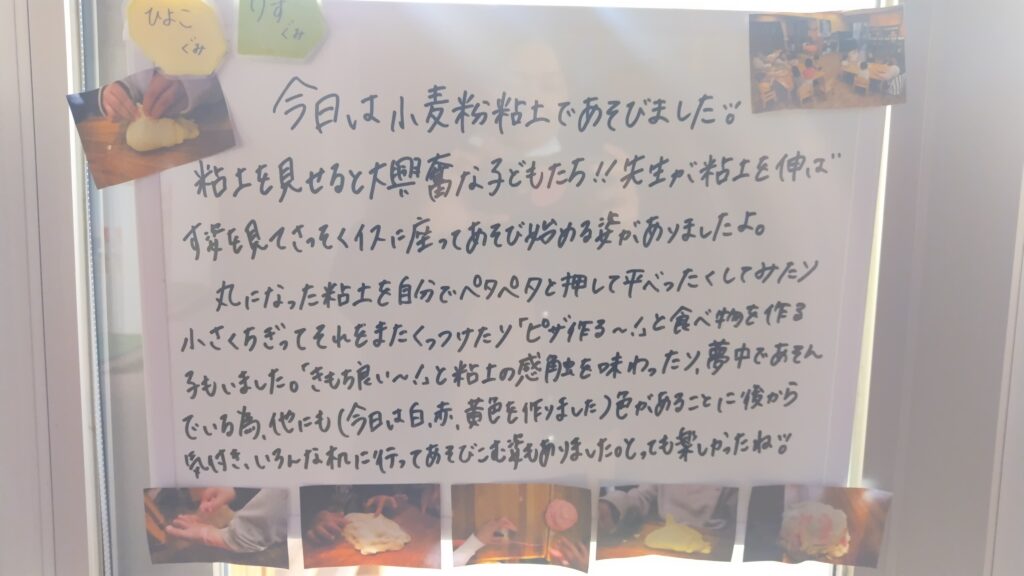 ひよこ
ぐみ
りす
ぐみ
今日は小麦粉粘土であそびました!!
粘土を見せると大興奮な子どもたち!!先生が粘土を伸ば
す姿を見てさっそくイスに座ってあそび始める姿がありましたよ。
丸になった粘土を自分でペタペタと押して平べったくしてみたり
小さくちぎってそれをまたくっつけたり「ピザ作る〜!」と食べ物を作る
子もいました。「きもち良い〜!」と粘土の感触を味わったり、夢中であそん
でいる為、他にも(今日は白、赤、黄色を作りました)色があることに後から
気付き、いろんな机に行ってあそびこむ姿もありました。とっても楽しかったね!!